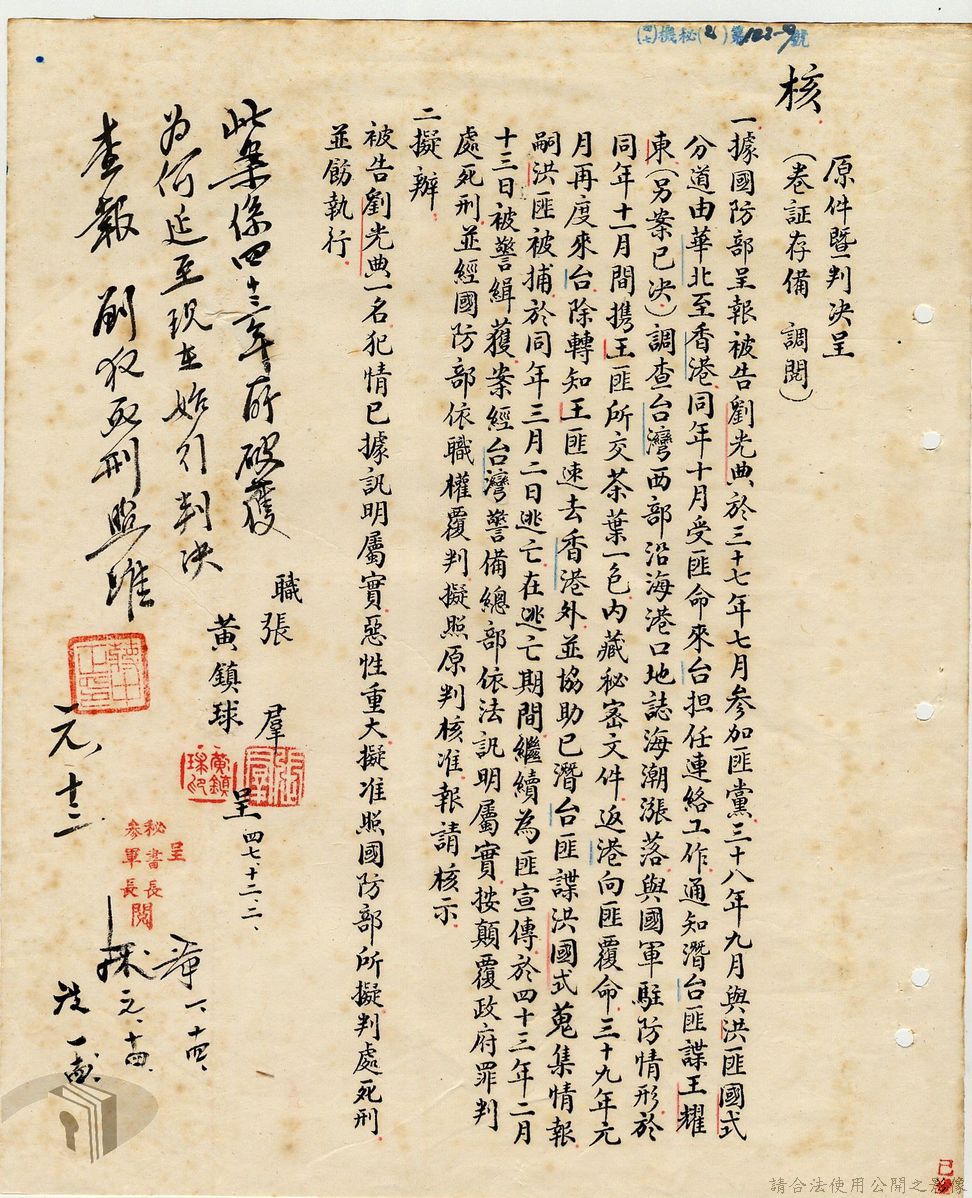 (四七)機秘(2)第122-9號
核
原件暨判決呈
(卷証存備 調閱)
一據國防部呈報被告劉光典於三十七年七月參加匪黨三十八年九月與洪匪國式
分道由華北至香港同年十月受匪命來台担任連絡工作通知潛台匪諜王耀
東(另案已決)調查台灣西部沿海港口地誌海潮漲落與國軍駐防情形於
同年十一月間携王匪所交茶葉一包內藏秘密文件返港向匪覆命三十九年元
月再度來台除轉知王匪速去香港外並協助已潛台匪諜洪國式蒐集情報
嗣洪匪被捕於同年三月二日逃亡在逃亡期間繼續為匪宣傳於四十三年二月
十三日被警緝獲案經台灣警備總部依法訊明屬實按顛覆政府罪判
處死刑並經國防部依職權覆判擬照原判核准報請核示
二擬辦
被告劉光典一名犯情已據訊明屬實惡性重大擬准照國防部所擬判處死刑
並飭執行
職張 羣
黃鎮球 呈 四七、十二、二、
此案係四十三年所破獲
為何延至現在始行判決
查報 劉犯死刑照准
蔣中正印
張羣
黃鎮球印
元、十三
呈
秘書長
參軍長
閱
羣 一、十四、
球 元、十四、
請合法使用公開之影像